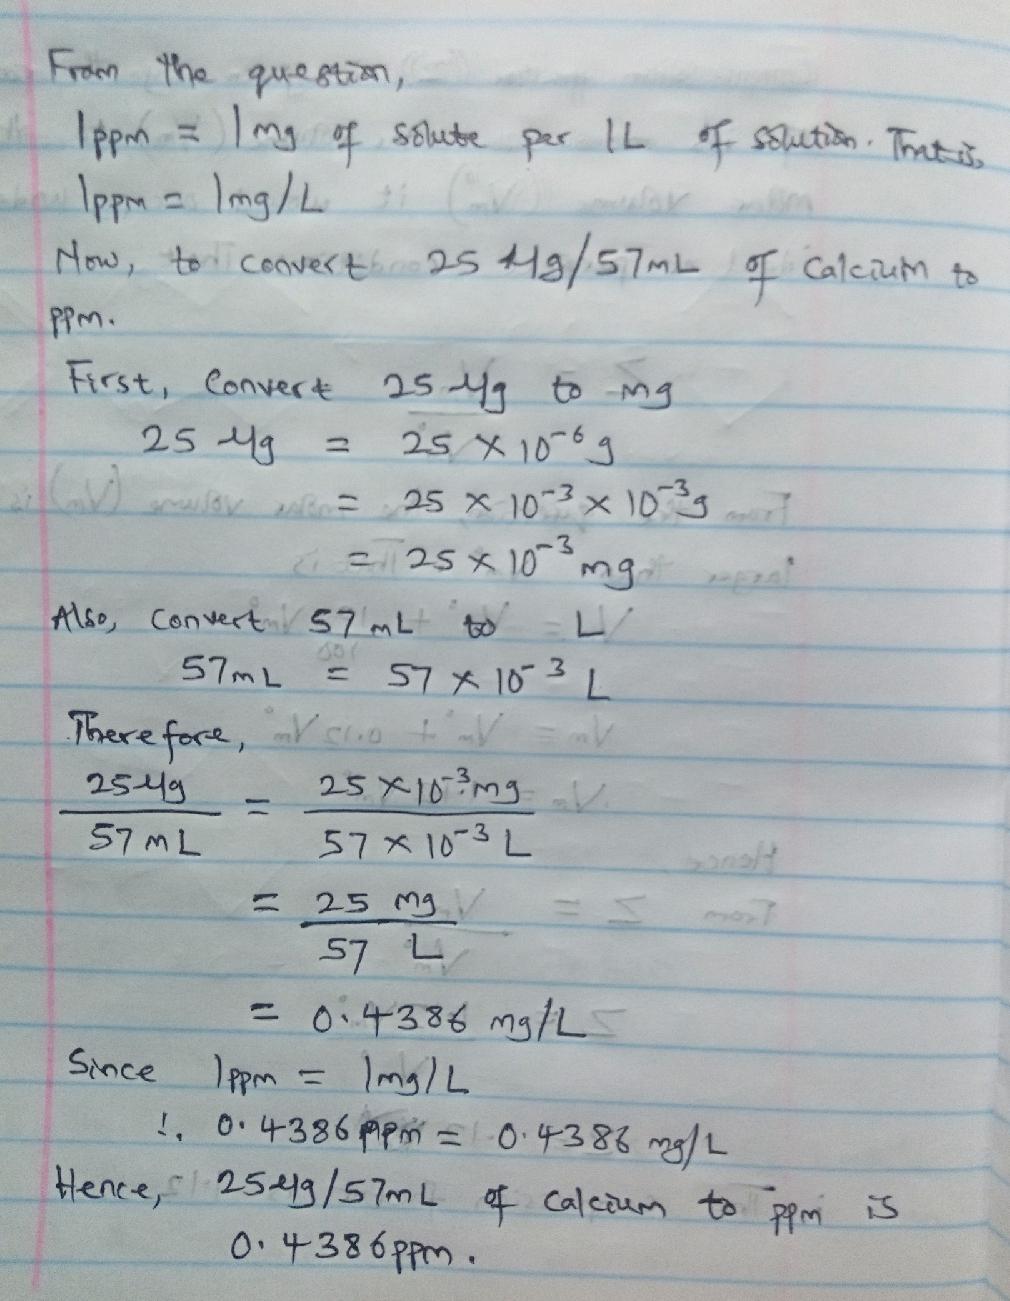 From the question,
1ppm = 1mg of solute per 1L of solution. That is,
1ppm = 1mg/L
Now, to convert 25 μg/57mL of Calcium to
ppm.
First, Convert 25 μg to mg
25 μg = 25 × 10⁻⁶ g
= 25 × 10⁻³ × 10⁻³g
= 25 × 10⁻³ mg
Also, Convert 57 mL to L
57mL = 57 × 10⁻³ L
Therefore,
25μg = 25 × 10⁻³mg
57 mL 57 × 10⁻³ L
= 25 mg
57 L
= 0.4386 mg/L
Since 1ppm = 1mg/L
∴ 0.4386 ppm = 0.4386 mg/L
Hence, 25μg/57mL of Calcium to ppm is
0.4386ppm.